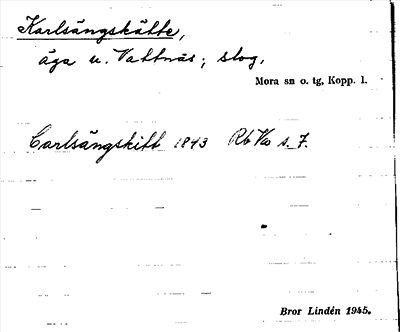 Karlsängskätte,
äga u. Vattnäs; slog.
Mora sn o. tg, Kopp. l.
Carlsängskitt 1843 Rb Va s. 7.
Bror Lindén 1945.